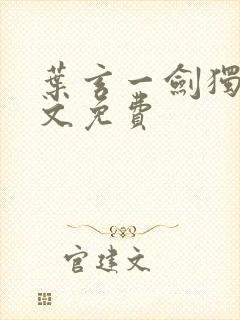 葉言一劍獨
文免費
官建文